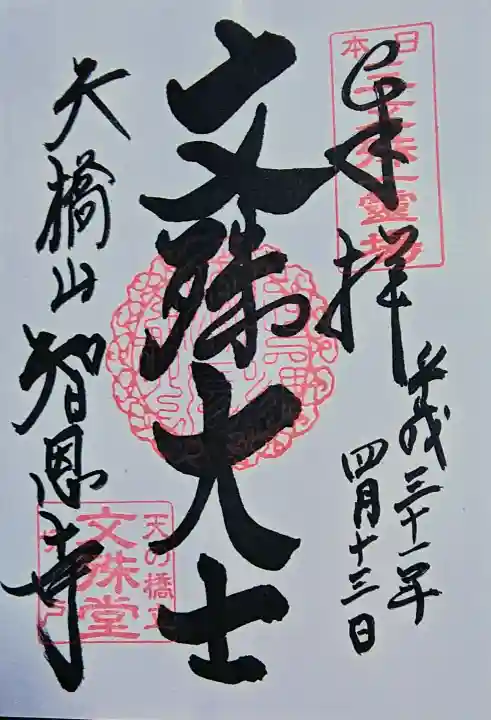 奉拝
平成三十一年
四月十三日
文殊大士
天橋山智恩寺
日本三文殊霊場
天の橋立
文殊堂